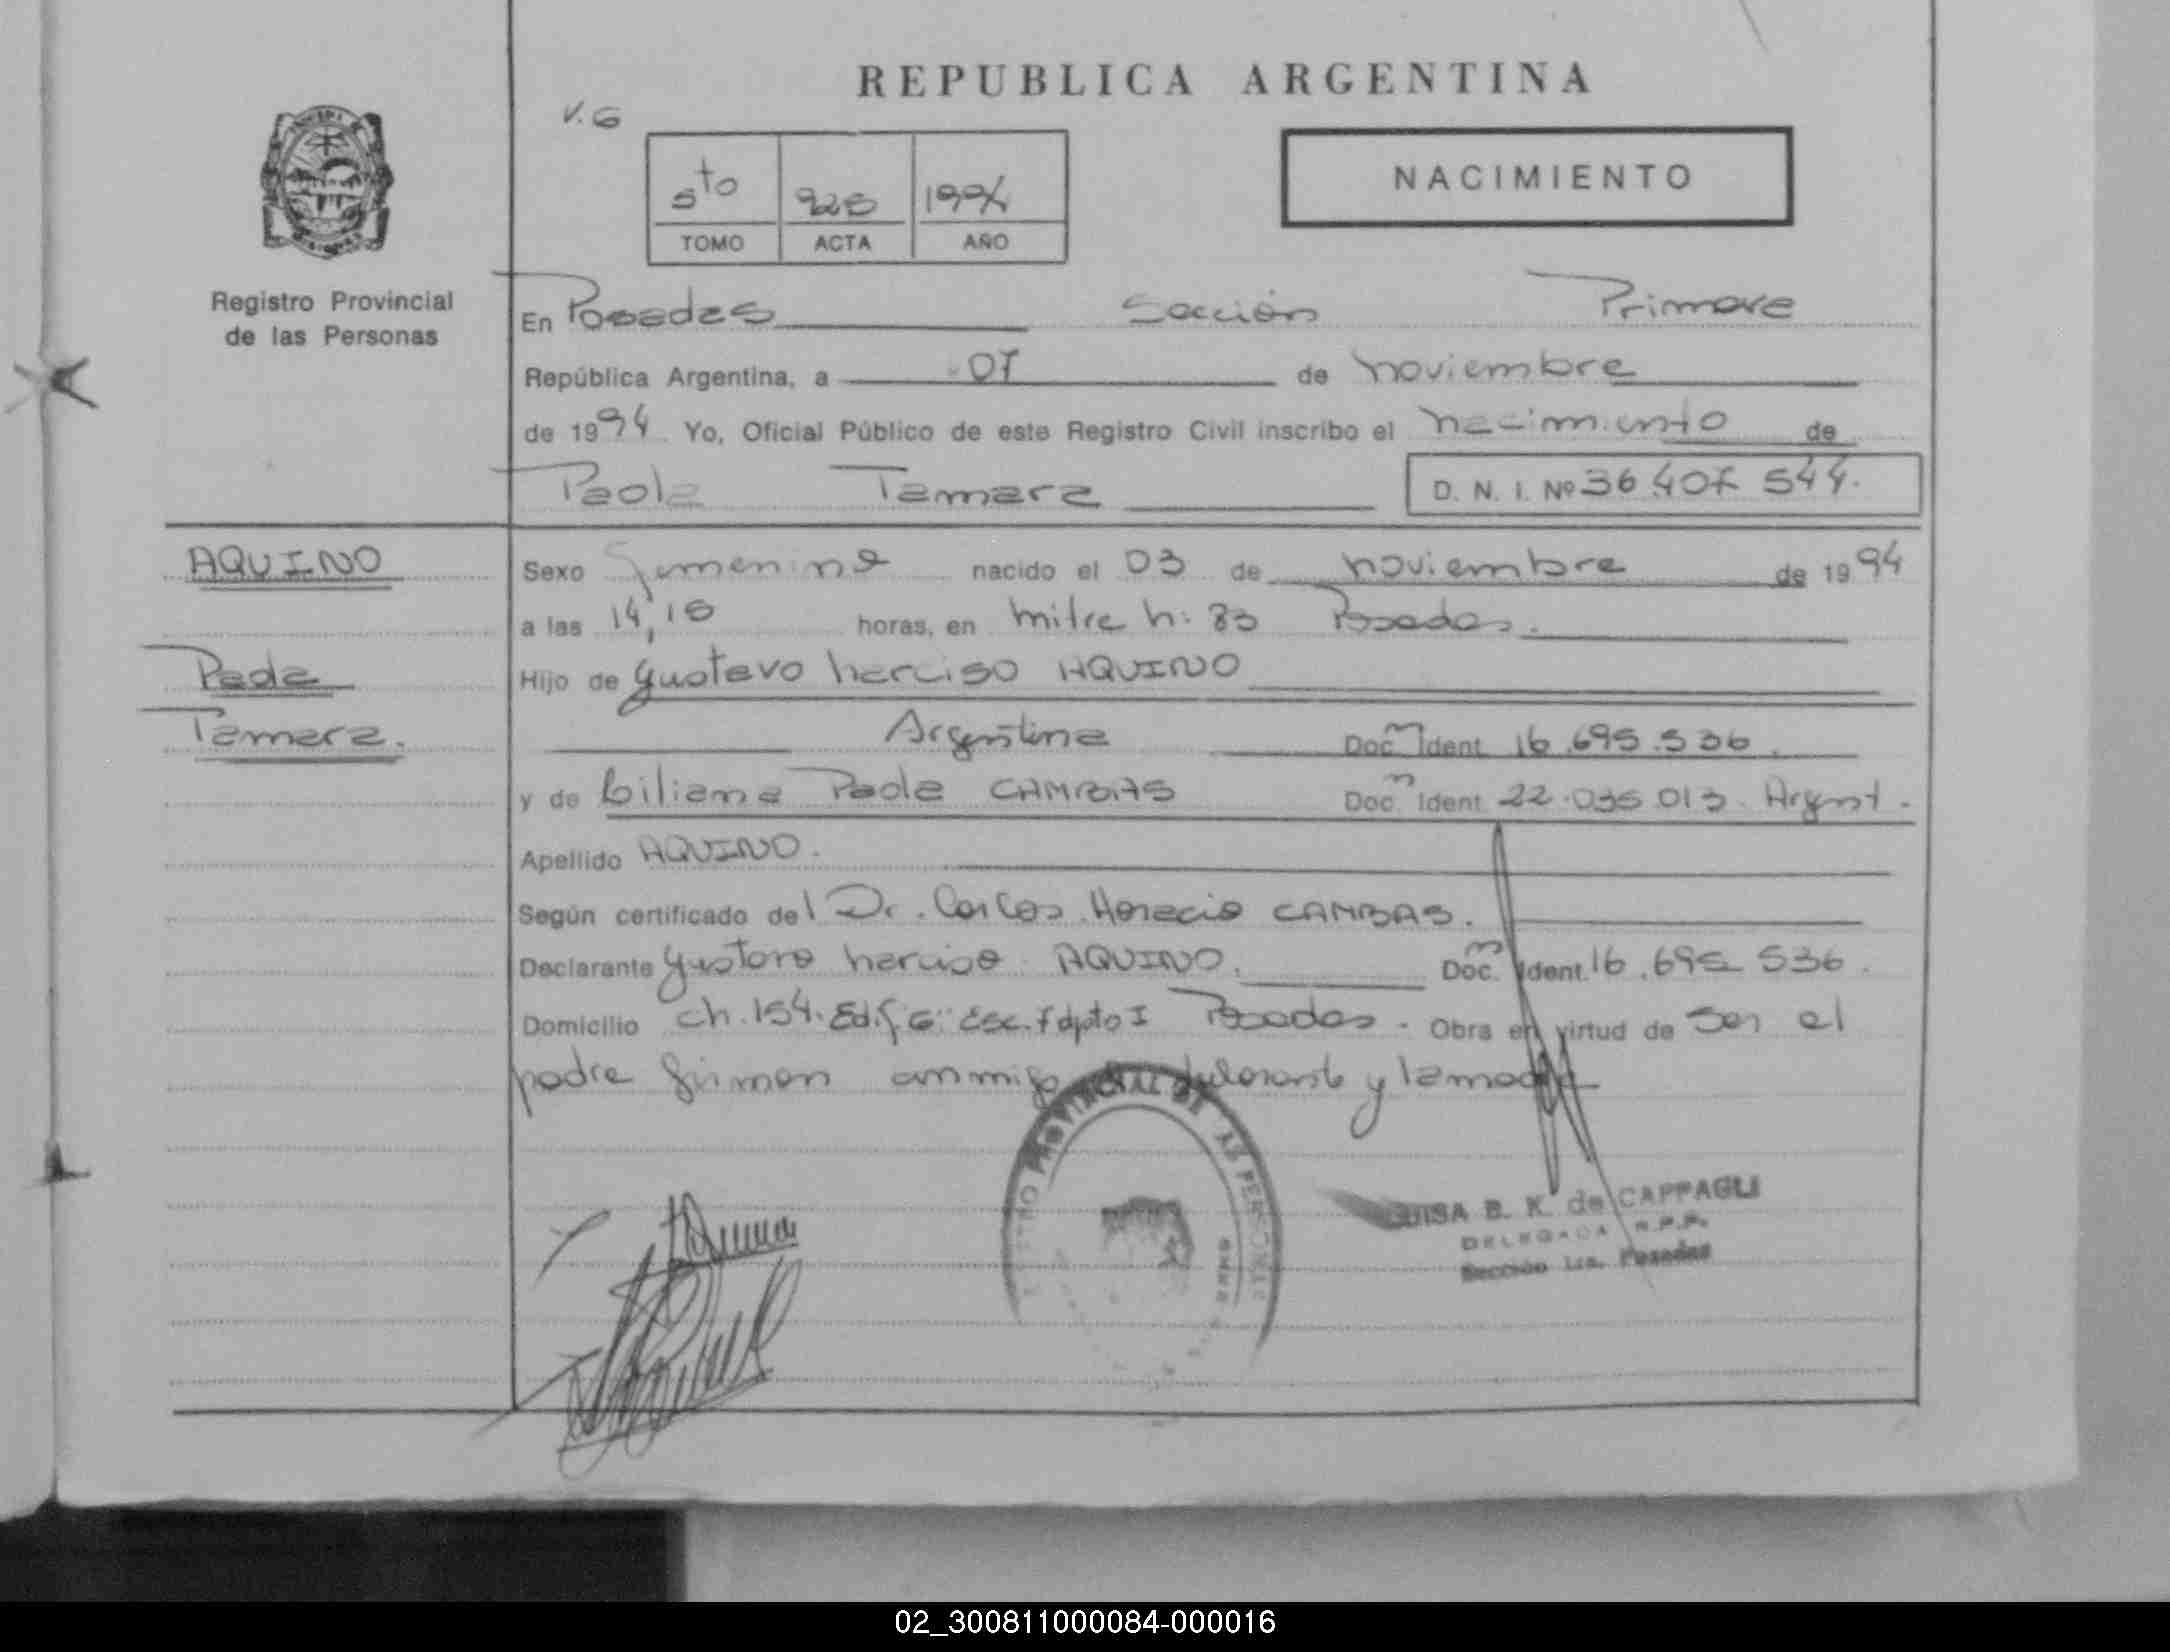 REPUBLICA ARGENTINA
V. G
5to 925 1994
TOMO ACTA AÑO
NACIMIENTO
Registro Provincial
de las Personas
En Posadas Sección Primera
República Argentina, a 07 de noviembre
de 1994 Yo, Oficial Público de este Registro Civil inscribo el nacimiento de
Paola Tamara D. N. I. Nº 36.407 544.
AQUINO
Paola
Tamara.
Sexo femenino nacido el 03 de noviembre de 1994
a las 14,15 horas, en mitre n: 83 Posadas.
Hijo de Gustavo narciso AQUINO
Argentina Doc. Ident. 16.695.536.
y de Liliana Paola CAMBAS Doc. Ident. 22.035.013. Argent.
Apellido AQUINO.
Según certificado del Dr. Carlos Horacio CAMBAS.
Declarante Gustavo narciso AQUINO. Doc. Ident. 16.695 536.
Domicilio ch.154. Edif G: Esc. f dpto I Posadas. Obra en virtud de ser el
padre firman conmigo declarante y la madre
REGISTRO PROVINCIAL DE LAS PERSONAS
LUISA B. K. de CAPPAGLI
DELEGADA R.P.P.
Sección 1ra. Posadas
02_300811000084-000016